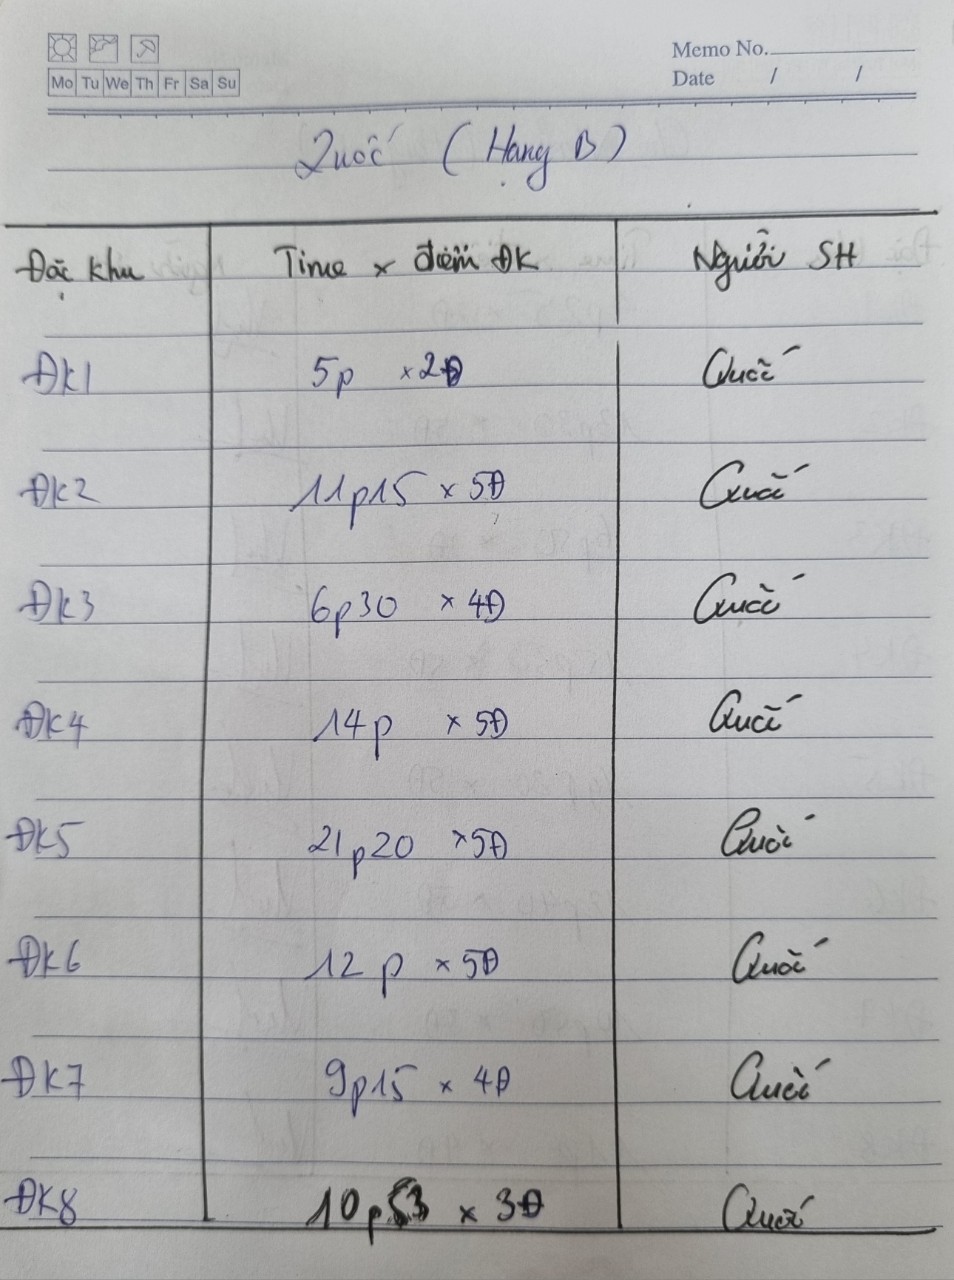 Memo No.
Mo Tu We Th Fr Sa Su
Date / /
Quốc (Hạng B)
Đặc khu Time x điểm ĐK Người SH
ĐK1 5p x2Đ Quốc
ĐK2 11p15 x 5Đ Quốc
ĐK3 6p30 x 4Đ Quốc
ĐK4 14p x 5Đ Quốc
ĐK5 21p20 x5Đ Quốc
ĐK6 12p x 5Đ Quốc
ĐK7 9p15 x 4Đ Quốc
ĐK8 10p53 x 3Đ Quốc